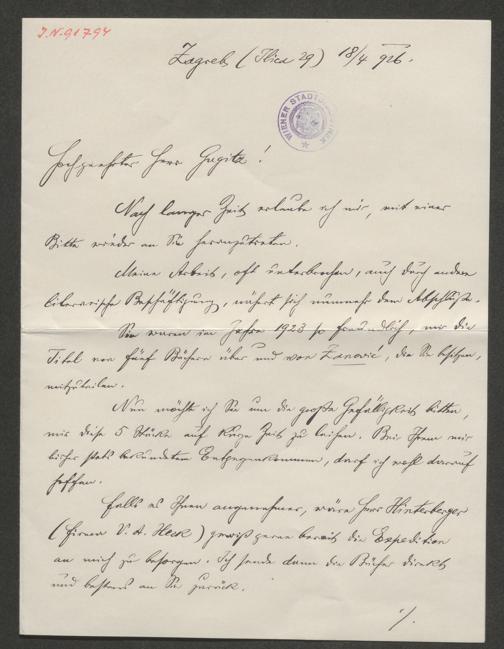 J.N. 91794
Zagreb (Ilica 29) 18/4 926.
WIENER STADTBIBLIOTHEK
Hochgeehrter Herr Gugitz!
Nach langer Zeit erlaube ich mir, mit einer
Bitte wieder an Sie heranzutreten.
Meine Arbeit, oft unterbrochen, auch durch andere
literarische Beschäftigung, nähert sich nunmehr dem Abschluße.
Sie waren im Jahre 1923 so freundlich, mir die
Titel von fünf Büchern über und von Zanovic, die Sie besitzen,
mitzuteilen.
Nun möchte ich Sie um die große Gefälligkeit bitten,
mir diese 5 Stücke auf kurze Zeit zu leihen. Bei Ihrem mir
bisher stets bekundeten Entgegenkommen, darf ich wohl darauf
hoffen.
Falls es Ihnen angenehmer, wäre Herr Hinterberger
(Firma V. A. Heck) gewiß gerne bereit die Expedition
an mich zu besorgen. Ich sende dann die Bücher direkt
und bestens an Sie zurück.
./.